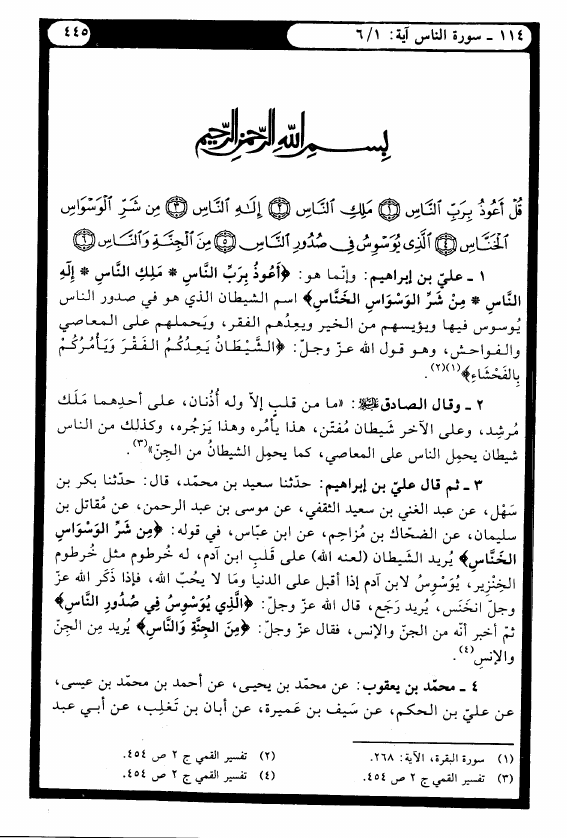 ١١٤ ـ سورة الناس آية: ٦/١
٤٤٥
بِسْمِ اللهِ الرَّحْمنِ الرَّحِيمِ
قُلْ أَعُوذُ بِرَبِّ النَّاسِ ﴿١﴾ مَلِكِ النَّاسِ ﴿٢﴾ إِلَهِ النَّاسِ ﴿٣﴾ مِن شَرِّ الْوَسْوَاسِ
الْخَنَّاسِ ﴿٤﴾ الَّذِي يُوَسْوِسُ فِي صُدُورِ النَّاسِ ﴿٥﴾ مِنَ الْجِنَّةِ وَالنَّاسِ ﴿٦﴾
١ ـ عليّ بن إبراهيم: وإنّما هو: ﴿أَعُوذُ بِرَبِّ النَّاسِ * مَلِكِ النَّاسِ * إِلَهِ
النَّاسِ * مِنْ شَرِّ الوَسْوَاسِ الخَنَّاسِ﴾ اسم الشيطان الذي هو في صدور الناس
يُوسوس فيها ويؤيسهم من الخير ويعِدُهم الفقر، ويَحملهم على المعاصي
والفواحش، وهو قول الله عزّ وجلّ: ﴿الشَّيْطَانُ يَعِدُكُمُ الفَقْرَ وَيَأمُرُكُمْ
بِالفَحْشَاءِ﴾(١)(٢).
٢ ـ وقال الصادق عليه السلام: «ما من قلبٍ إلاّ وله أُذُنان، على أحدِهما مَلَك
مُرشِد، وعلى الآخر شيطان مُفتّن، هذا يأمُره وهذا يَزجُره، وكذلك من الناس
شيطان يحمِل الناس على المعاصي، كما يحمِل الشيطانُ من الجِنّ»(٣).
٣ ـ ثم قال عليّ بن إبراهيم: حدّثنا سعيد بن محمّد، قال: حدّثنا بكر بن
سَهْل، عن عبد الغني بن سعيد الثقفي، عن موسى بن عبد الرحمن، عن مقاتل بن
سليمان، عن الضحّاك بن مُزاحِم، عن ابن عبّاس، في قوله: ﴿مِن شَرِّ الوَسْوَاسِ
الخَنَّاسِ﴾ يُريد الشيطان (لعنه الله) على قَلبِ ابن آدم، له خُرطوم مثل خُرطوم
الخِنْزِير، يُوَسْوِسُ لابن آدم إذا أقبل على الدنيا ومَا لا يحُبّ الله، فإذا ذَكَر الله عزّ
وجلّ انخَنَس، يُريد رَجَع، قال الله عزّ وجلّ: ﴿الَّذِي يُوَسْوِسُ فِي صُدُورِ النَّاسِ﴾
ثمّ أخبر أنّه من الجنّ والإنس، فقال عزّ وجلّ: ﴿مِنَ الجِنَّةِ وَالنَّاسِ﴾ يُريد مِن الجِنّ
والإنسِ(٤).
٤ ـ محمّد بن يعقوب: عن محمّد بن يحيى، عن أحمد بن محمّد بن عيسى،
عن عليّ بن الحكم، عن سَيف بن عَميرة، عن أبان بن تَغلِب، عن أبي عبد
(١) سورة البقرة، الآية: ٢٦٨.
(٢) تفسير القمي ج ٢ ص ٤٥٤.
(٣) تفسير القمي ج ٢ ص ٤٥٤.
(٤) تفسير القمي ج ٢ ص ٤٥٤.